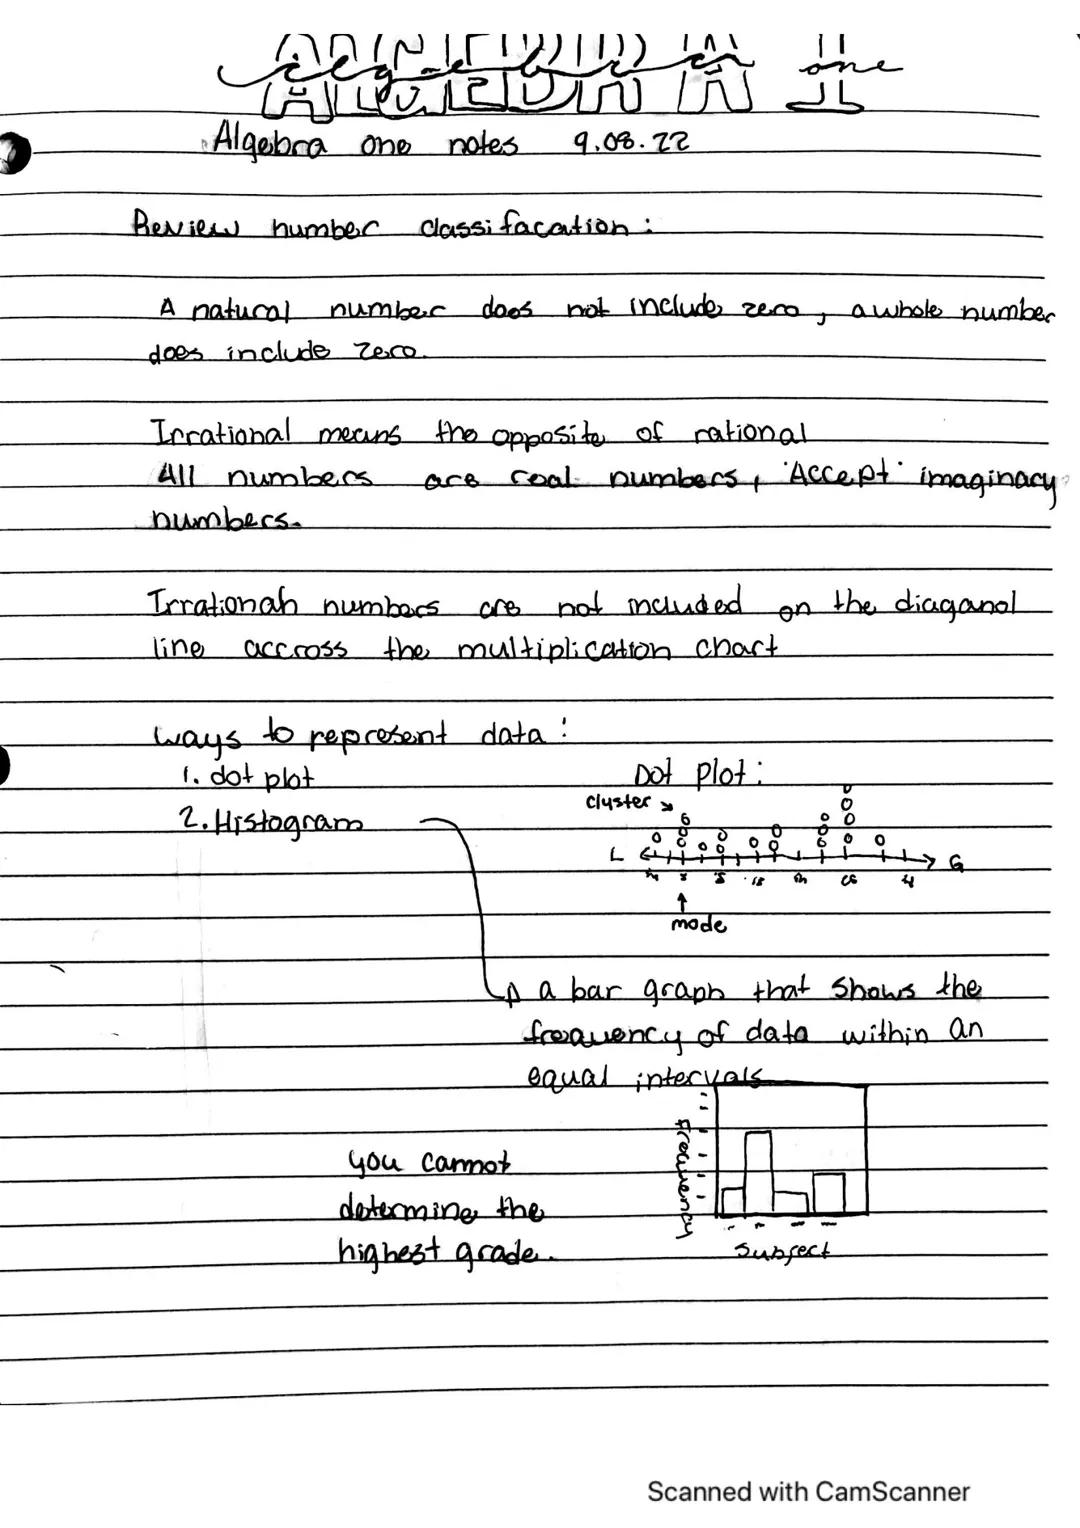 ALGEBRA 1
algebra one
Algebra one notes 9.08.22
Review number classifacation:
A natural number does not include zero, a whole number
does include zero.
Irrational means the opposite of rational
All numbers are real numbers, "Accept" imaginary
numbers.
Irrational numbers are not included on the diaganol
line accross the multiplication chart
ways to represent data:
1. dot plot
2. Histogram
Dot plot:
cluster
L
G
mode
a bar graph that shows the
frequency of data within an
equal intervals
you cannot
determine the
highest grade.
Frequency
Subject
Scanned with CamScanner